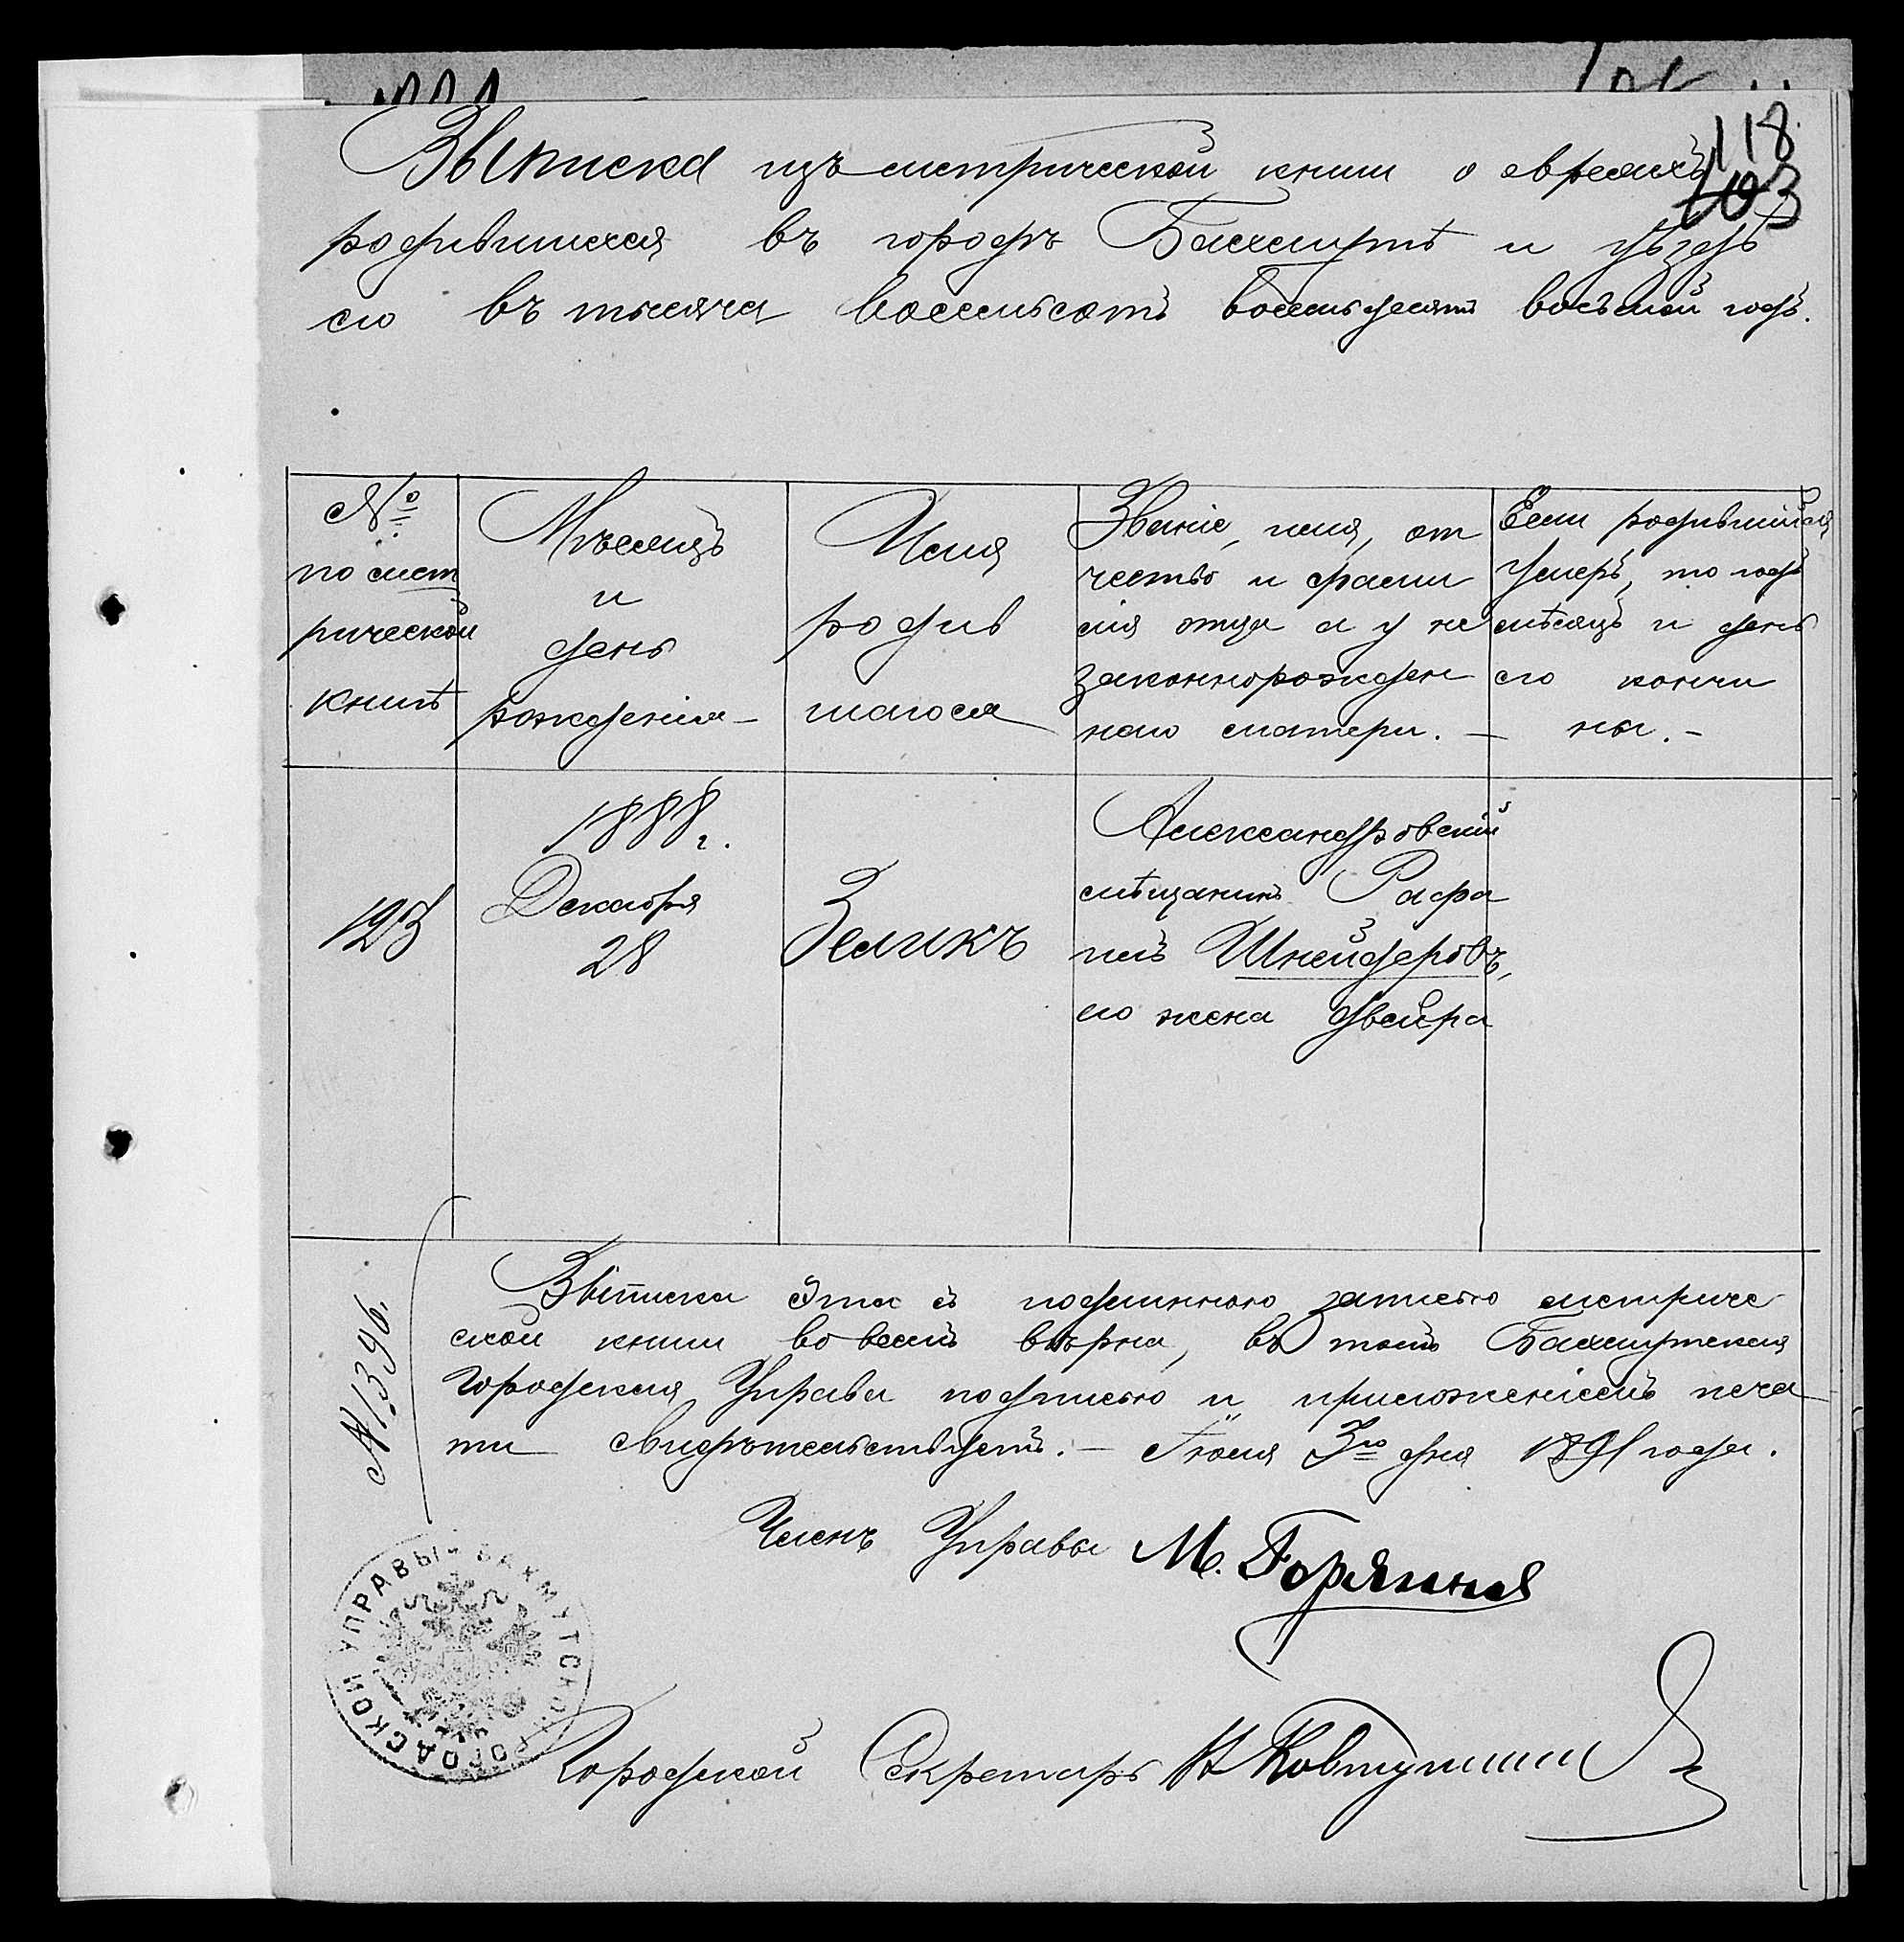 118
103
Выписка изъ метрической книги о евреяхъ
родившихся въ городѣ Бахмутѣ и уѣздѣ
его въ тысяча восемьсотъ восемьдесятъ восьмой годъ.
№
по мет
рической
книгѣ
Мѣсяцъ
и
день
рожденія –
Имя
родив
шагося
Званіе, имя, от
чество и фами
лія отца а у не
законнорожден
наго матери. –
Если родившійся
умеръ, то годъ
мѣсяцъ и день
его кончи
ны. –
123
1888 г.
Декабря
28
Зеликъ
Александровскій
мѣщанинъ Рафа
илъ Шнейдеровъ,
его жена Двейра
№ 1396.
Выписка эта съ подлинною записью метриче
ской книги во всемъ вѣрна, въ томъ Бахмутская
Городская Управа подписью и приложеніемъ печа
ти свидѣтельствуетъ. – Іюля 3го дня 1891 года.
Членъ Управы М.
БАХМУТСКОЙ ГОРОДСКОЙ УПРАВЫ
Городской Секретарь Н